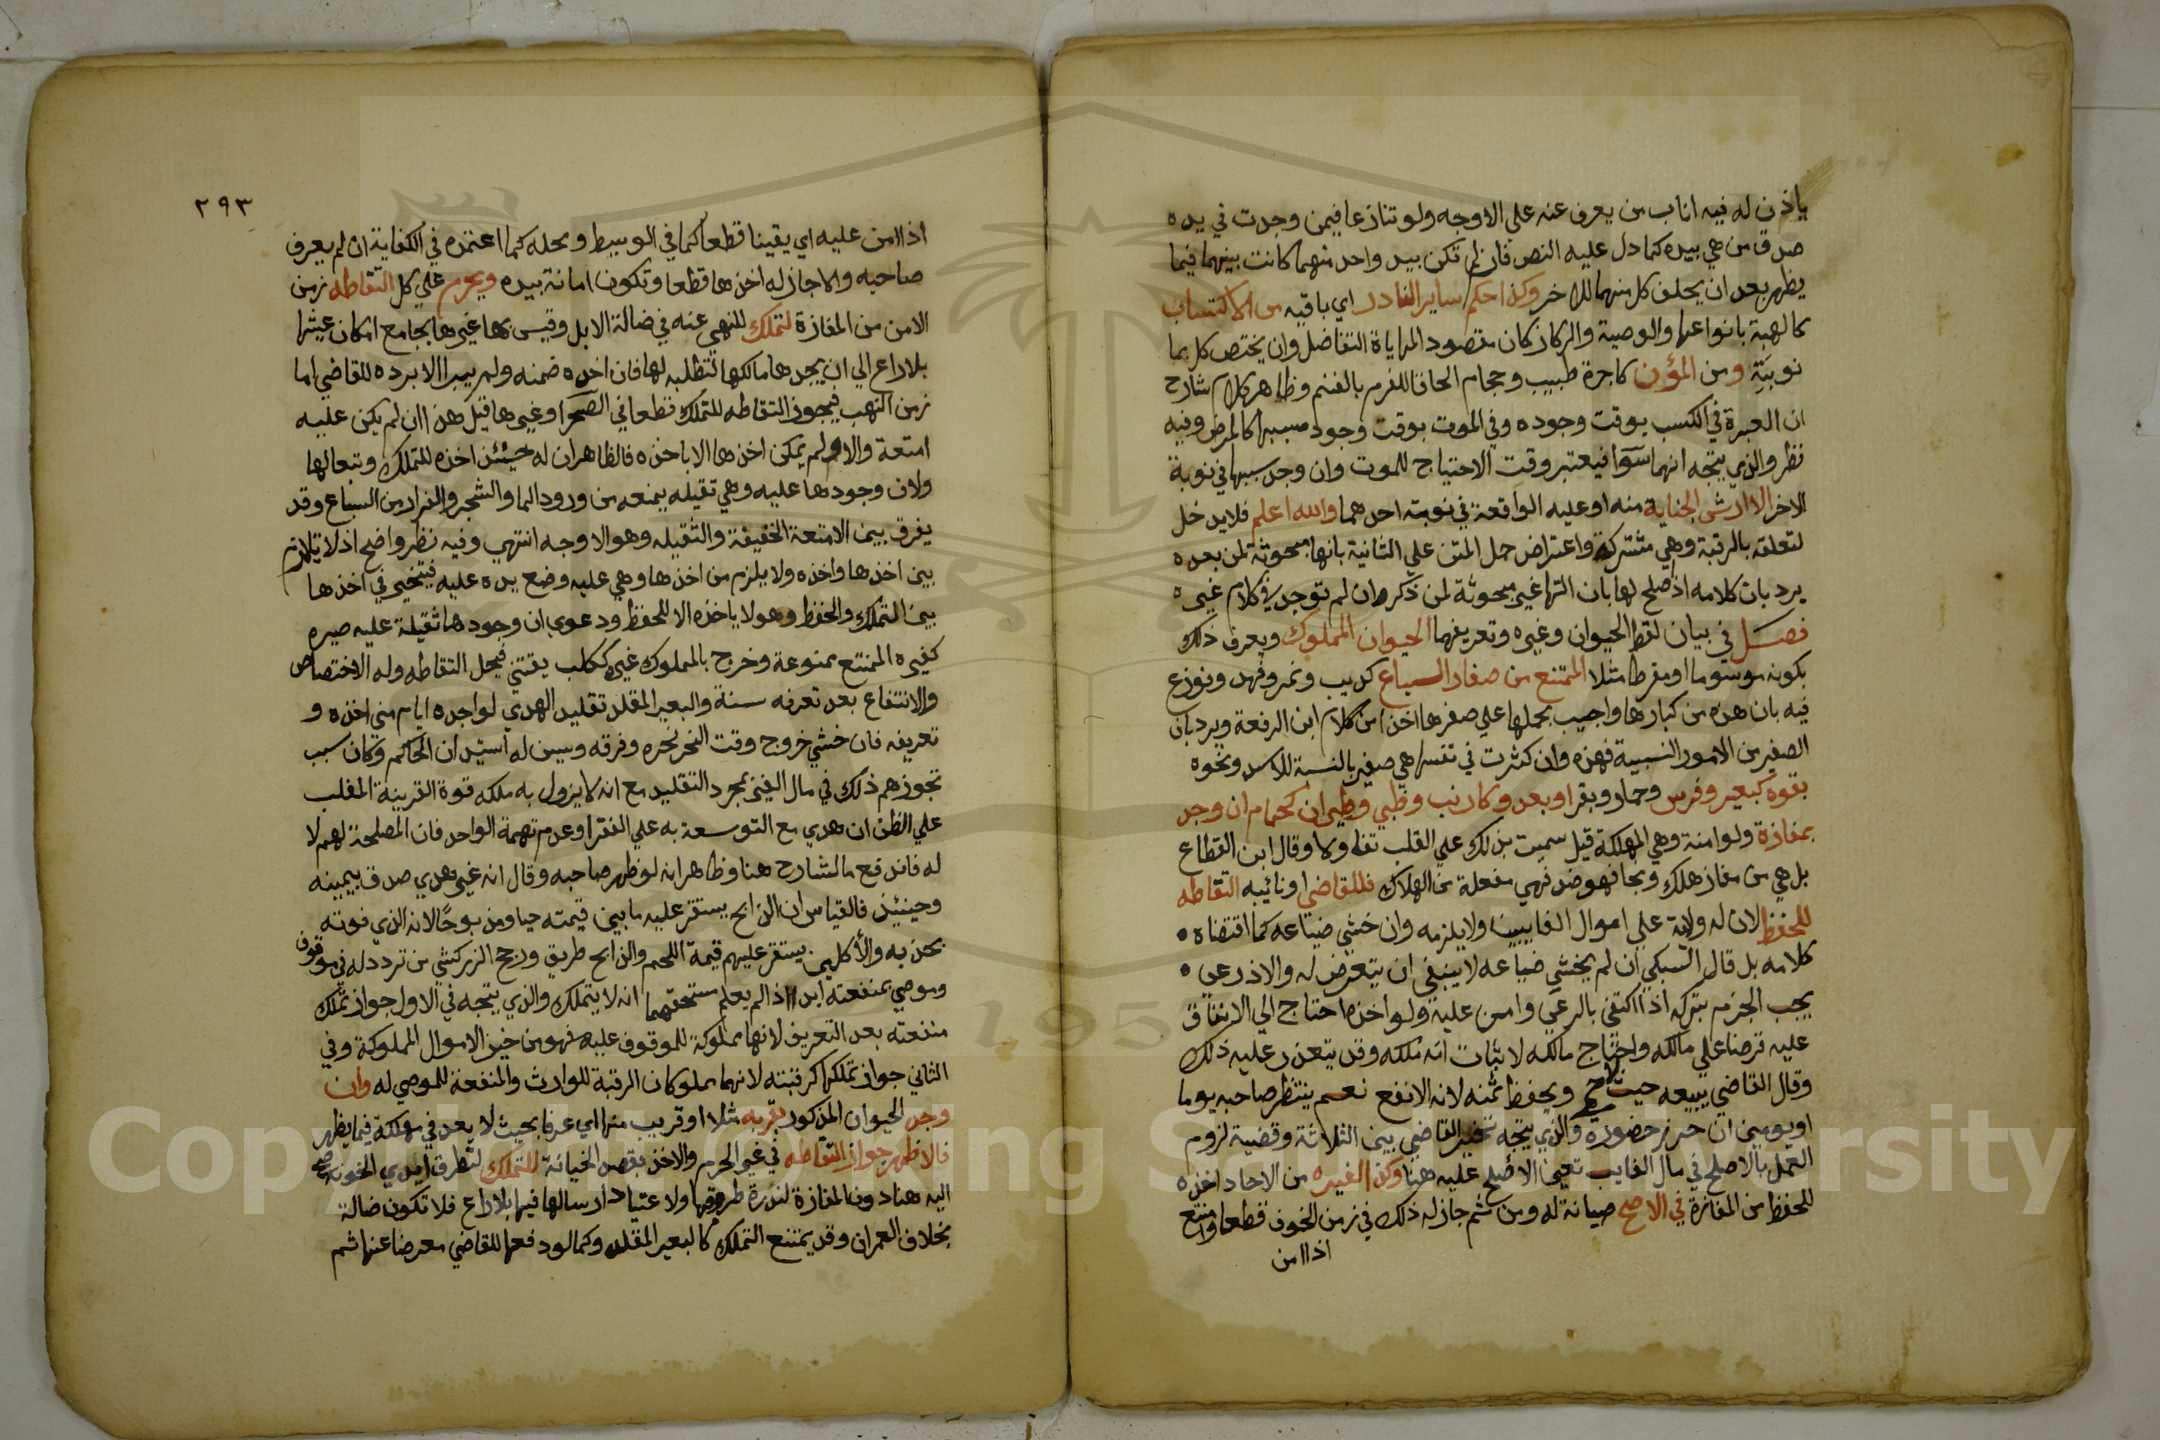 ياذن له فيه اناب من يعرف عنه على الاوجه ولو تنازعا فيمن وجدت في يده
صدق من هي بيده كما دل عليه النص فان لم تكن بيد واحد منهما كانت بينهما فيما
يظهر بعد ان يحلف كل منهما للاخر وكذا حكم ساير النادر اي باقيه من الاكتساب
كالهبة بانواعها والوصية والركاز كان مقصود المهاياة التفاضل وان يختص كل بما
نوبته ومن المؤن كاجرة طبيب وحجام الحاقا للغرم بالغنم وظاهر كلام شارح
ان العبرة في الكسب بوقت وجوده وفي الموت بوقت وجود سببها كالمرض وفيه
نظر والذي يتجه انهما سوا فيعتبر وقت الاحتياج للموت وان وجد سببها في نوبة
الاخر الا ارش الجناية منه او عليه الواقعة في نوبة احدهما والله اعلم فلا يدخل
لتعلقه بالرقبة وهي مشتركة واعتراض حمل المتن علي الثانية بانها مبحوثة لمن بعده
يرد بان كلامه اذا صلح لها بان انها غير مبحوثة لمن ذكر وان لم توجد في كلام غيره
فصل في بيان لقط الحيوان وغيره وتعريفهما الحيوان المملوك ويعرف ذلك
بكونه موسوما او مقرطا مثلا الممتنع من صغار السباع كذيب ونمر وفهد ونوزع
فيه بان هذه من كبارها واجيب بحملها علي صغرها اخذا من كلام ابن الرفعة ويرد بان
الصغير من الامور النسبية فهذه وان كثرت في نفسها هي صغير بالنسبة للاسد ونحوه
بقوة كبعير وفرس وحمار وبقر او بعدو كارنب وظبي وطيران كحمام ان وجد
بمفازة ولو امنة وهي المهلكة قيل سميت بذلك علي القلب تفاولا وقال ابن القطاع
بل هي من فاز هلك ونجا فهو ضد فهي مفعلة من الهلاك فللقاضي او نائبه التقاطه
للحفظ لان له ولاية علي اموال الغايبين ولا يلزمه وان خشي ضياعه كما اقتضاه
كلامه بل قال السبكي ان لم يخشي ضياعه لا ينبغي ان يتعرض له والاذرعي
يجب الجزم بتركه اذا اكتفي بالرعي وامن عليه ولو اخذه احتاج الي الانفاق
عليه قرضا علي مالكه واحتاج مالكه لاثبات انه ملكه وقد يتعذر عليه ذلك
وقال القاضي يبيعه حيث لاح ويحفظ ثمنه لانه الانفع نعم ينتظر صاحبه يوما
او يومين ان جوز حضوره والذي يتجه تخيير القاضي بين الثلاثة وقضية لزوم
العمل بالاصلح في مال الغايب تعين الاصلح عليه هنا وكذا لغيره من الاحاد اخذه
للحفظ من المفازة في الاصح صيانة له ومن ثم جاز له ذلك في زمن الخوف قطعا وامتنع
اذا امن
٢٩٣
اذا امن عليه اي يقينا قطعا كما في الوسيط ومحله كما اعتمده في الكفاية ان لم يعرف
صاحبه والا جاز له اخذها قطعا وتكون امانة بيده ويحرم علي كل التقاطه زمن
الامن من المفازة لتملك للنهي عنه في ضالة الابل وقيس بها غيرها بجامع امكان عيشها
بلا راع الي ان يجدها مالكها لتطلبه لها فان اخذه ضمنه ولم يبرا الا برده للقاضي اما
زمن النهب فيجوز التقاطه للتملك قطعا في الصحرا وغيرها قيل هذا ان لم يكن عليه
امتعة والا ولم يمكن اخذها الا باخذه فالظاهر ان له حينئذ اخذه للتملك وتبعا لها
ولان وجودها عليه وهي ثقيله يمنعه من ورود الما والشجر والفرار من السباع وقد
يفرق بين الامتعة الخفيفة والثقيله وهو الاوجه انتهي وفيه نظر واضح اذ لا تلازم
بين اخذها واخذه ولا يلزم من اخذها وهي عليه وضع يده عليه فيتخير في اخذها
بين التملك والحفظ وهو لا ياخذه الا للحفظ ودعوي ان وجودها ثقيلة عليه صيره
كغيره الممتنع ممنوعة وخرج بالمملوك غيره ككلب يقتني فيحل التقاطه وله الاختصاص
والانتفاع بعد تعرفه سنة والبعير المقلد تقليد الهدي لواجده ايام مني اخذه و
تعريفه فان خشي خروج وقت النحر نحره وفرقه وسن له استيذان الحاكم وكان سبب
تجويزهم ذلك في مال الغير بمجرد التقليد مع انه لا يزول به ملكه قوة القرينة المغلب
علي الظن ان هدي مع التوسعة به علي الفقرا وعدم تهمة الواحد فان المصلحة لهم لا
له فاندفع ما للشارح هنا وظاهر انه لو ظهر صاحبه وقال انه غير هدي صدق بيمينه
وحينئذ فالقياس ان الذابح يستقر عليه ما بين قيمته حيا ومذبوحا لانه الذي فوته
بحذبه والاكلين يستقر عليهم قيمة اللحم والذابح طريق ورجح الزركشي من تردد له في موقوف
وموصي بمنفعته ابدا اذا لم يعلم مستحقهما انه لا يتملك والذي يتجه في الاول جواز تملك
منفعته بعد التعريف لانها مملوكة للموقوف عليه فهو من حيز الاموال المملوكة وفي
الثاني جواز تملكها كرقبته لانهما مملوكان الرقبة للوارث والمنفعة للموصي له وان
وجد الحيوان المذكور بقريه مثلا او قريب منها اي عرفا بحيث لا يعد في مهلكة فيما يظهر
فالاظهر جواز التقاطه في غير الحرم والاخذ بقصد الخيانة للتملك لتطرق ايدي الخونة
اليه هنا دون المفازة لندرة طروقها ولا عتياد ارسالها فيها بلا راع فلا تكون ضالة
بخلاف العمران وقد يمتنع التملك كالبعير المقلد وكما لو دفعها للقاضي معرضا عنها ثم